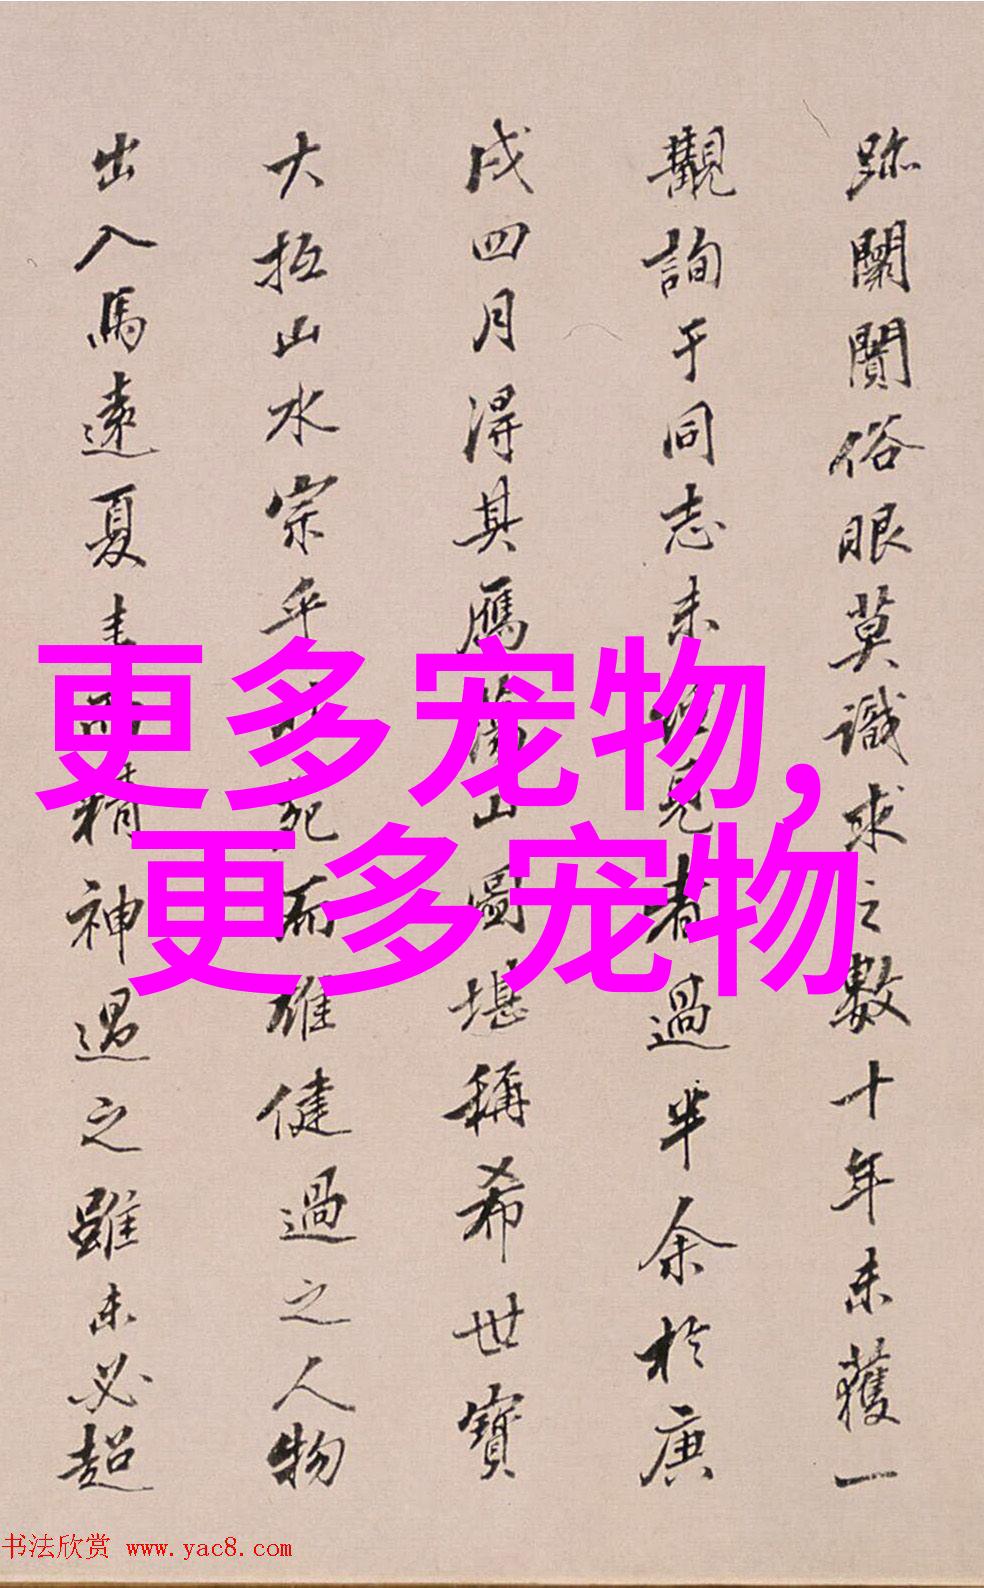 跡闌闠俗眼莫識求之數十年未獲一
觀詢于同志未見者過半余於庚
戌四月得其鴈蕩山圖堪稱希世寶
大抵山水宗乎而雄健過之人物
出入馬遠夏圭而精神過之雖未必超
更多宠物,
更多宠物
书法欣赏 www.yac8.com